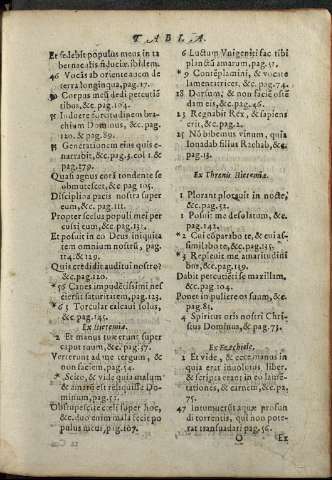 TABLA.
Et sedebit populus meus in ta
bernaculis fiduciæ ibidem.
46 Vocãs ab oriente auem de
terra longinqua, pag.17.
50 Corpus meũ dedi percutiẽ
tibus, &c. pag.104.
51 Induere fortitudinem brachium Dominus, &c. pag.
120. & 89.
53 Generationem eius quis enarrabit, &c. pag.3. col.1. &
pag.279.
Quasi agnus corã tondente se
obmutescet, &c. pag 105.
Disciplina pacis nostra super
eum, &c. pag. 111.
Propter scelus populi mei percussi eum, &c. pag.131.
Et posuit in eo Deus iniquita
tem omnium nostrũ, pag.
114. & 129.
Quis credidit auditui nostro?
&c. pag.120.
*56 Canes impudẽtissimi nescierũt saturitatem, pag.123.
*63 Torcular calcaui solus,
&c. pag.145.
Ex Hieremia.
2 Et manus tuæ erunt super
caput tuum, &c. pag.57.
Verterunt ad me tergum, &
non faciem, pag.54.
* Scito, & vide quia malum
& amarũ est reliquisse Dominum, pag.51.
Obstupescite cæli super hoc,
&c. duo enim mala fecit po
pulus meus, pag.107.
6 Luctum Vnigeniti fac tibi
planctũ amarum, pag.51.
* 9 Contẽplamini, & vocate
lamentatrices, &c. pag.74.
18 Dorsum, & non faciẽ ostẽ
dam eis, &c. pag.46.
23 Regnabit Rex, & sapiens
erit, &c. pag.2.
25 Nõ bibemus vinum, quia
Ionadab filius Rachab, &c.
pag.13.
Ex Threnis Hieremiæ.
1 Plorans plorauit in nocte,
&c. pag.
1 Posuit me desolatam, &c.
pag.142.
* 2 Cui cõparabo te, & cui assimilabo te, &c. pag.135.
* 3 Repleuit me amaritudini
bus, &c. pag.139.
Dabit percutiẽti se maxillam,
&c. pag 104.
Ponet in puluere os suum, &c.
pag.85.
4 Spiritus oris nostri Christus Dominus, &c pag.73.
Ex Ezechiele.
2 Et vide, & ecce manus in
qua erat inuolutus liber,
& scriptæ erant in eo lamẽ-
tationes, & carmen, &c. pa,
75.
47 Intumuerũt aquæ profun
di torrentis, qui non poterat transuadari pag.56.
O Ex